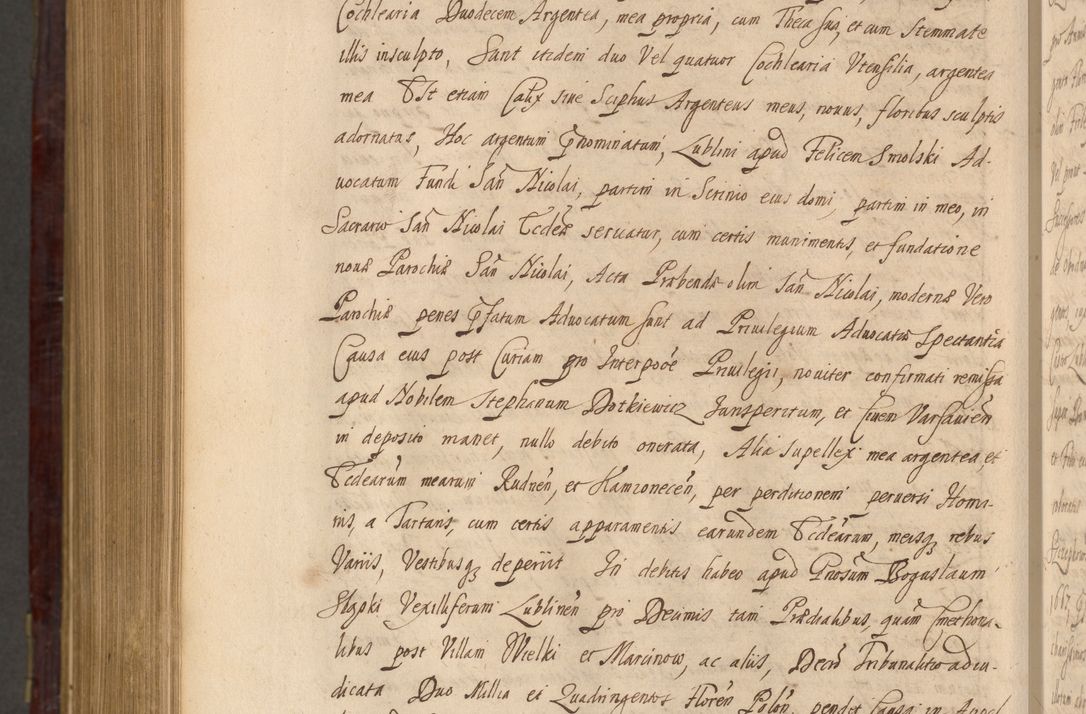 Cochlearia Duodecem Argentea, mea propria, cum Theca sua, et cum Stemmate
illis insculpto, Sunt itidem duo Vel quatuor Cochlearia Utensilia, argentea
mea Est etiam Calix siue Sciphus Argenteus meus, nouus, floribus sculptis
adornatus, Hoc argentum p̃nominatum, Lublini apud Felicem Smolski Ad-
uocatum Fundi San̄ Nicolai, partim in Scrinio eius domi, partim in meo, in
Sacrario San̄ Nicolai Ecclæ seruatur, cum certis munimentis, et fundatione
nouæ Parochiæ San̄ Nicolai, Acta Præbendæ olim San̄ Nicolai, modernæ Vero
Parochiæ penes p̃fatum Aduocatum sunt ad Priuilegium Aduocatæ Spectantia
Causa eius post Curiam pro Interpoõe Priuilegii, nouiter confirmati remissa
apud Nobilem Stephanum Dotkiewicz Jurisperitum, et Ciuem Varsauień
in deposito manet, nullo debito onerata, Alia Supellex mea argentea, et
Ecclearum mearum Rudneń, et Kamioneceń, per perditionem peruersi Homi-
nis, a Tartaris, cum certis apparamentis earundem Ecclearum, meisq rebus
Variis, Vestibusq deperiit In debitis habeo apud Gnosum Boguslaum
Słupki Vexilliferum Lublineń pro Decimis tam Prædialibus, quam Cmethona-
libus post Villam Wielki et Marcinow, ac aliis, Decro Tribunalitio adiu-
dicata Duo Millia et Quadringentos Floreń Poloń, pendet Causa in